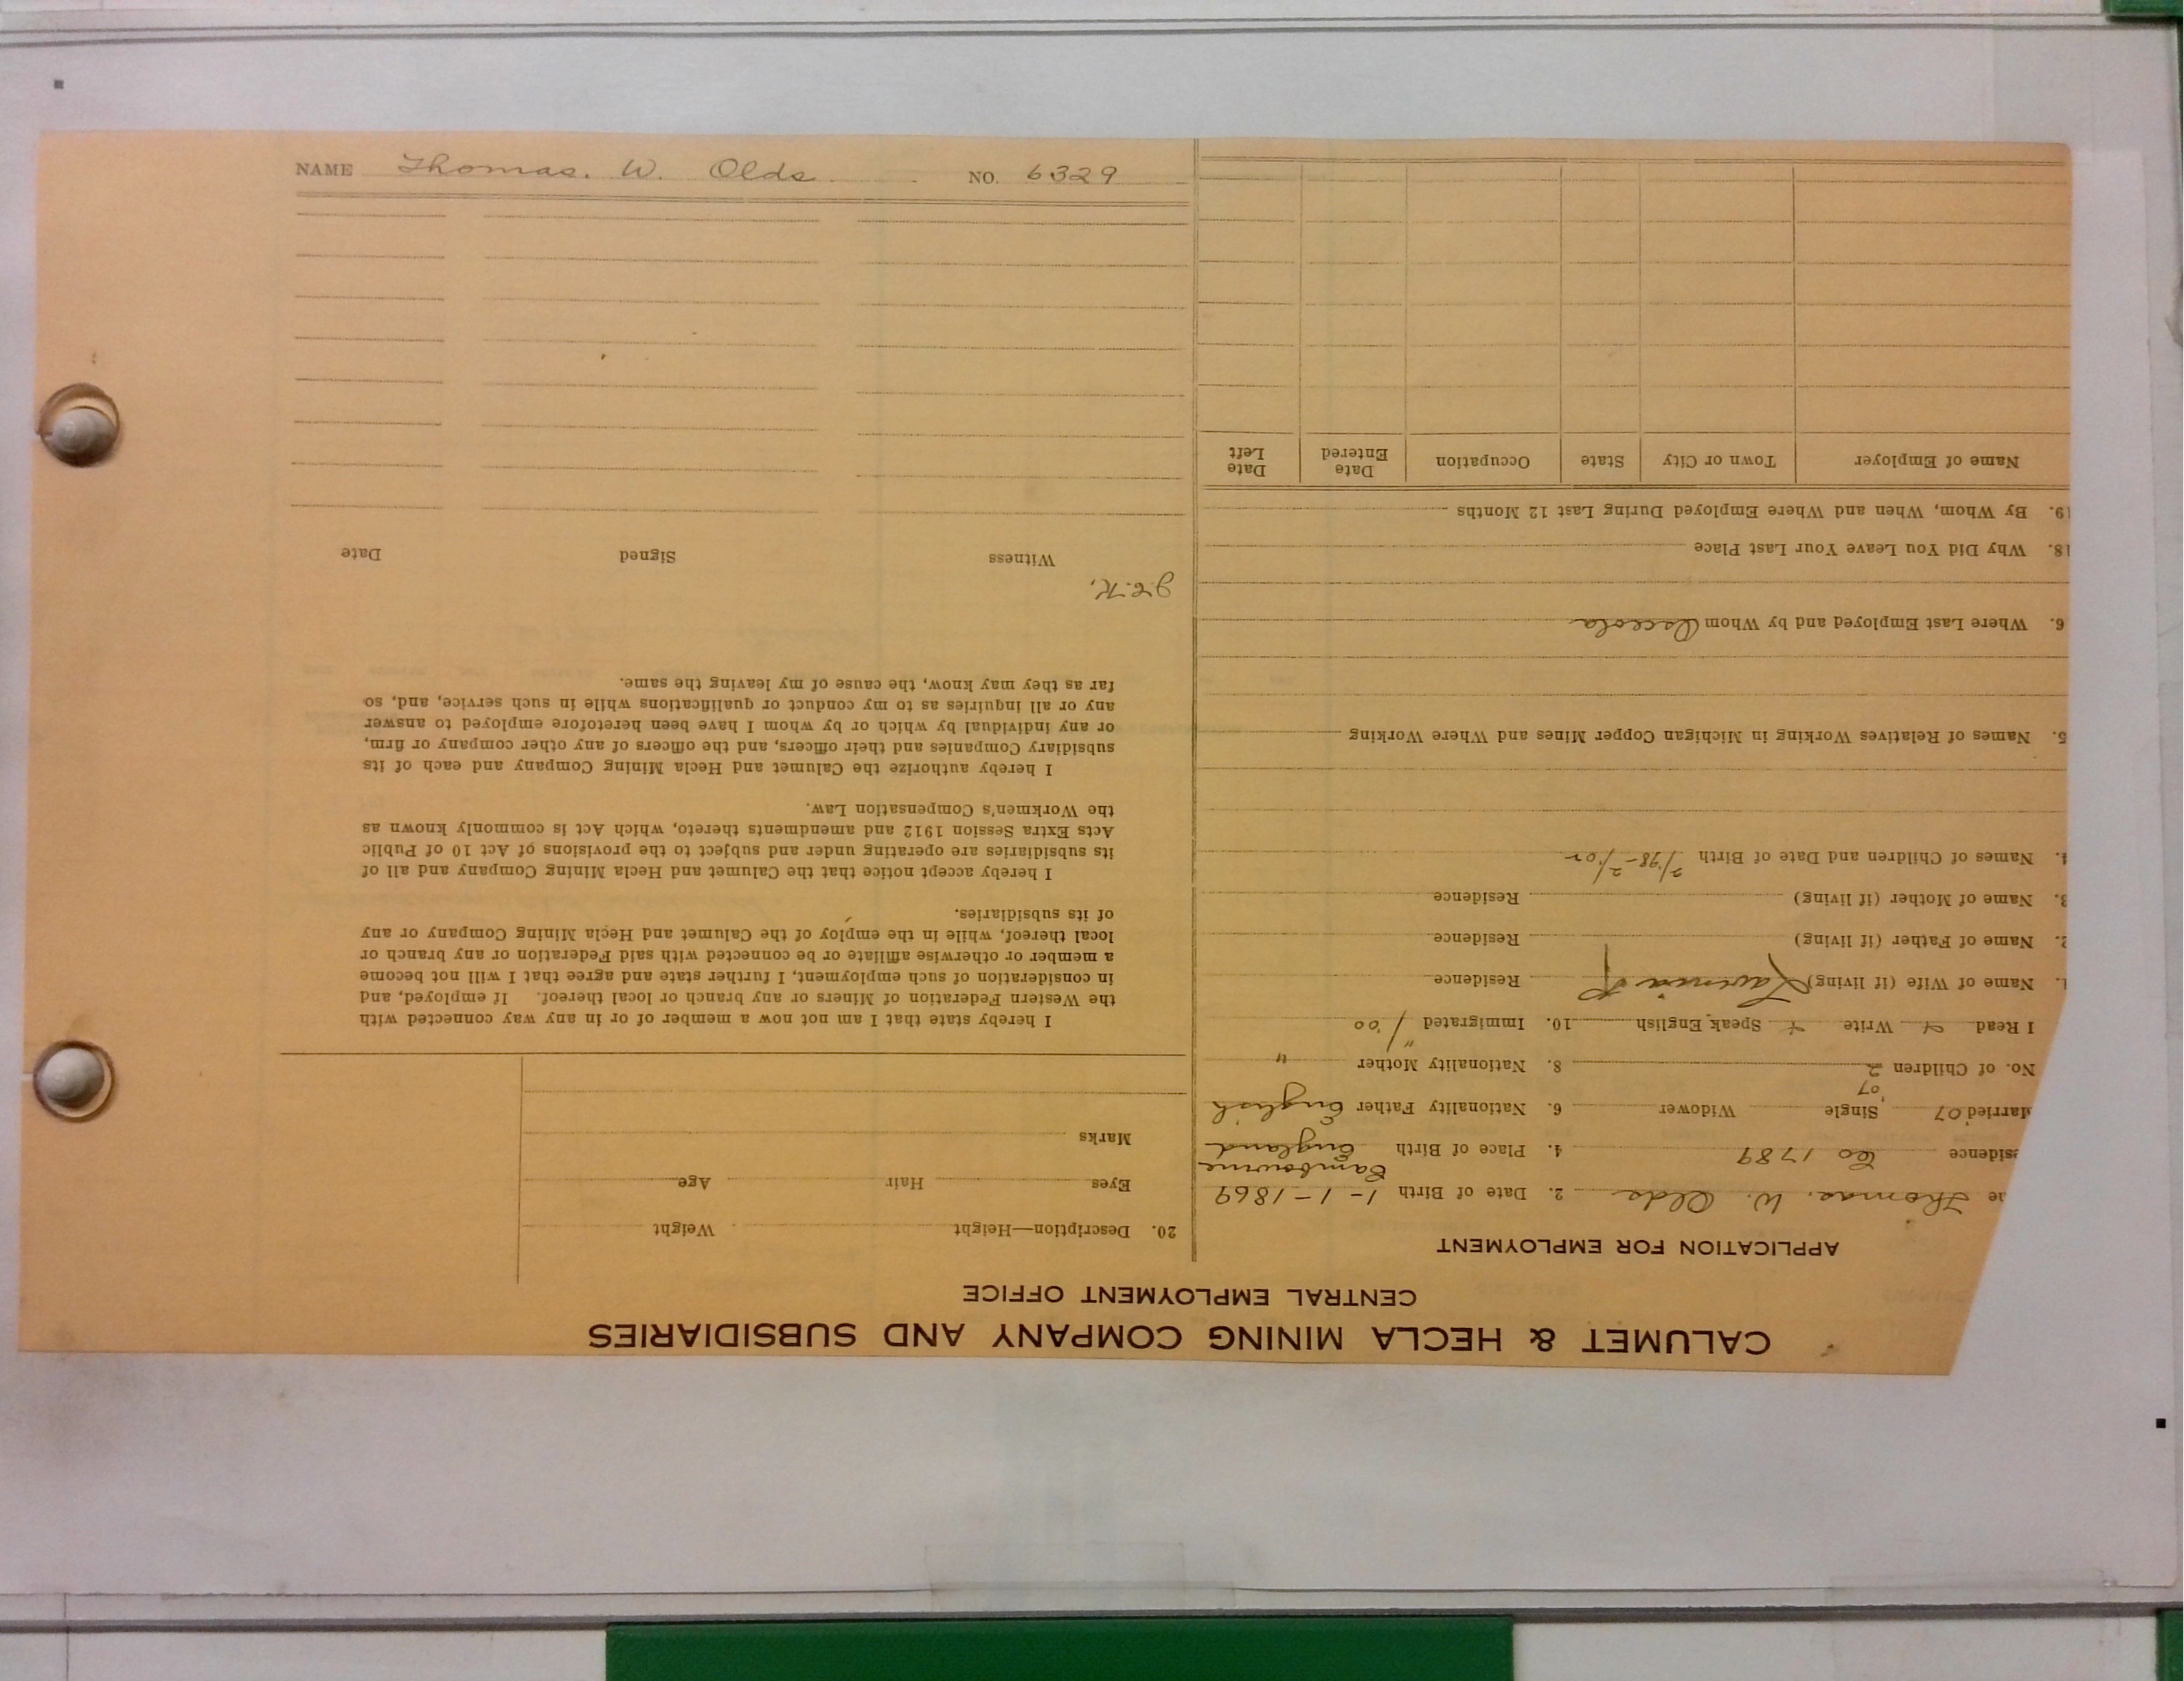 NAME Thomas. W. Olds NO. 6329
CALUMET & HECLA MINING COMPANY AND SUBSIDIARIES
CENTRAL EMPLOYMENT OFFICE
APPLICATION FOR EMPLOYMENT
Thomas. W. Olds 2. Date of Birth 1-1-1869
Camborne
Co 1789 4. Place of Birth England
Married '07 Single Widower 6. Nationality Father English
'07
No. of Children 2 8. Nationality Mother "
I Read Write Speak English 10. Immigrated '00
1. Name of Wife (if living) Lavinia Residence
2. Name of Father (if living) Residence
3. Name of Mother (if living) Residence
4. Names of Children and Date of Birth
5. Names of Relatives Working in Michigan Copper Mines and Where Working
6. Where Last Employed and by Whom Osceola
18. Why Did You Leave Your Last Place
19. By Whom, When and Where Employed During Last 12 Months
Name of Employer Town or City State Occupation Date Entered Date Left
20. Description—Height Weight
Eyes Hair Age
Marks
I hereby state that I am not now a member of or in any way connected with
the Western Federation of Miners or any branch or local thereof. If employed, and
in consideration of such employment, I further state and agree that I will not become
a member or otherwise affiliate or be connected with said Federation or any branch or
local thereof, while in the employ of the Calumet and Hecla Mining Company or any
of its subsidiaries.
I hereby accept notice that the Calumet and Hecla Mining Company and all of
its subsidiaries are operating under and subject to the provisions of Act 10 of Public
Acts Extra Session 1912 and amendments thereto, which Act is commonly known as
the Workmen's Compensation Law.
I hereby authorize the Calumet and Hecla Mining Company and each of its
subsidiary Companies and their officers, and the officers of any other company or firm,
or any individual by which or by whom I have been heretofore employed to answer
any or all inquiries as to my conduct or qualifications while in such service, and, so
far as they may know, the cause of my leaving the same.
Witness Signed Date